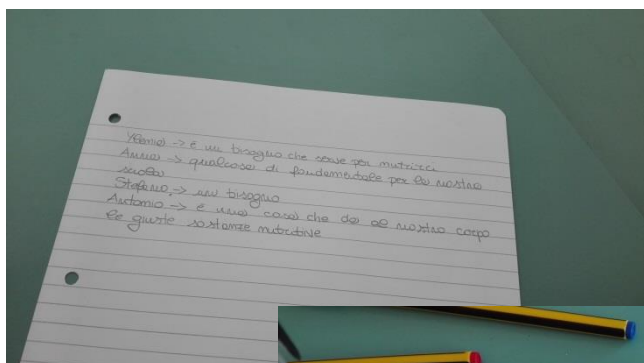 Ylenia → è un bisogno che serve per nutrirci
Anna → qualcosa di fondamentale per la nostra
Stefano → un bisogno
Antonio → è una cosa che da al nostro corpo
le giuste sostanze nutritive